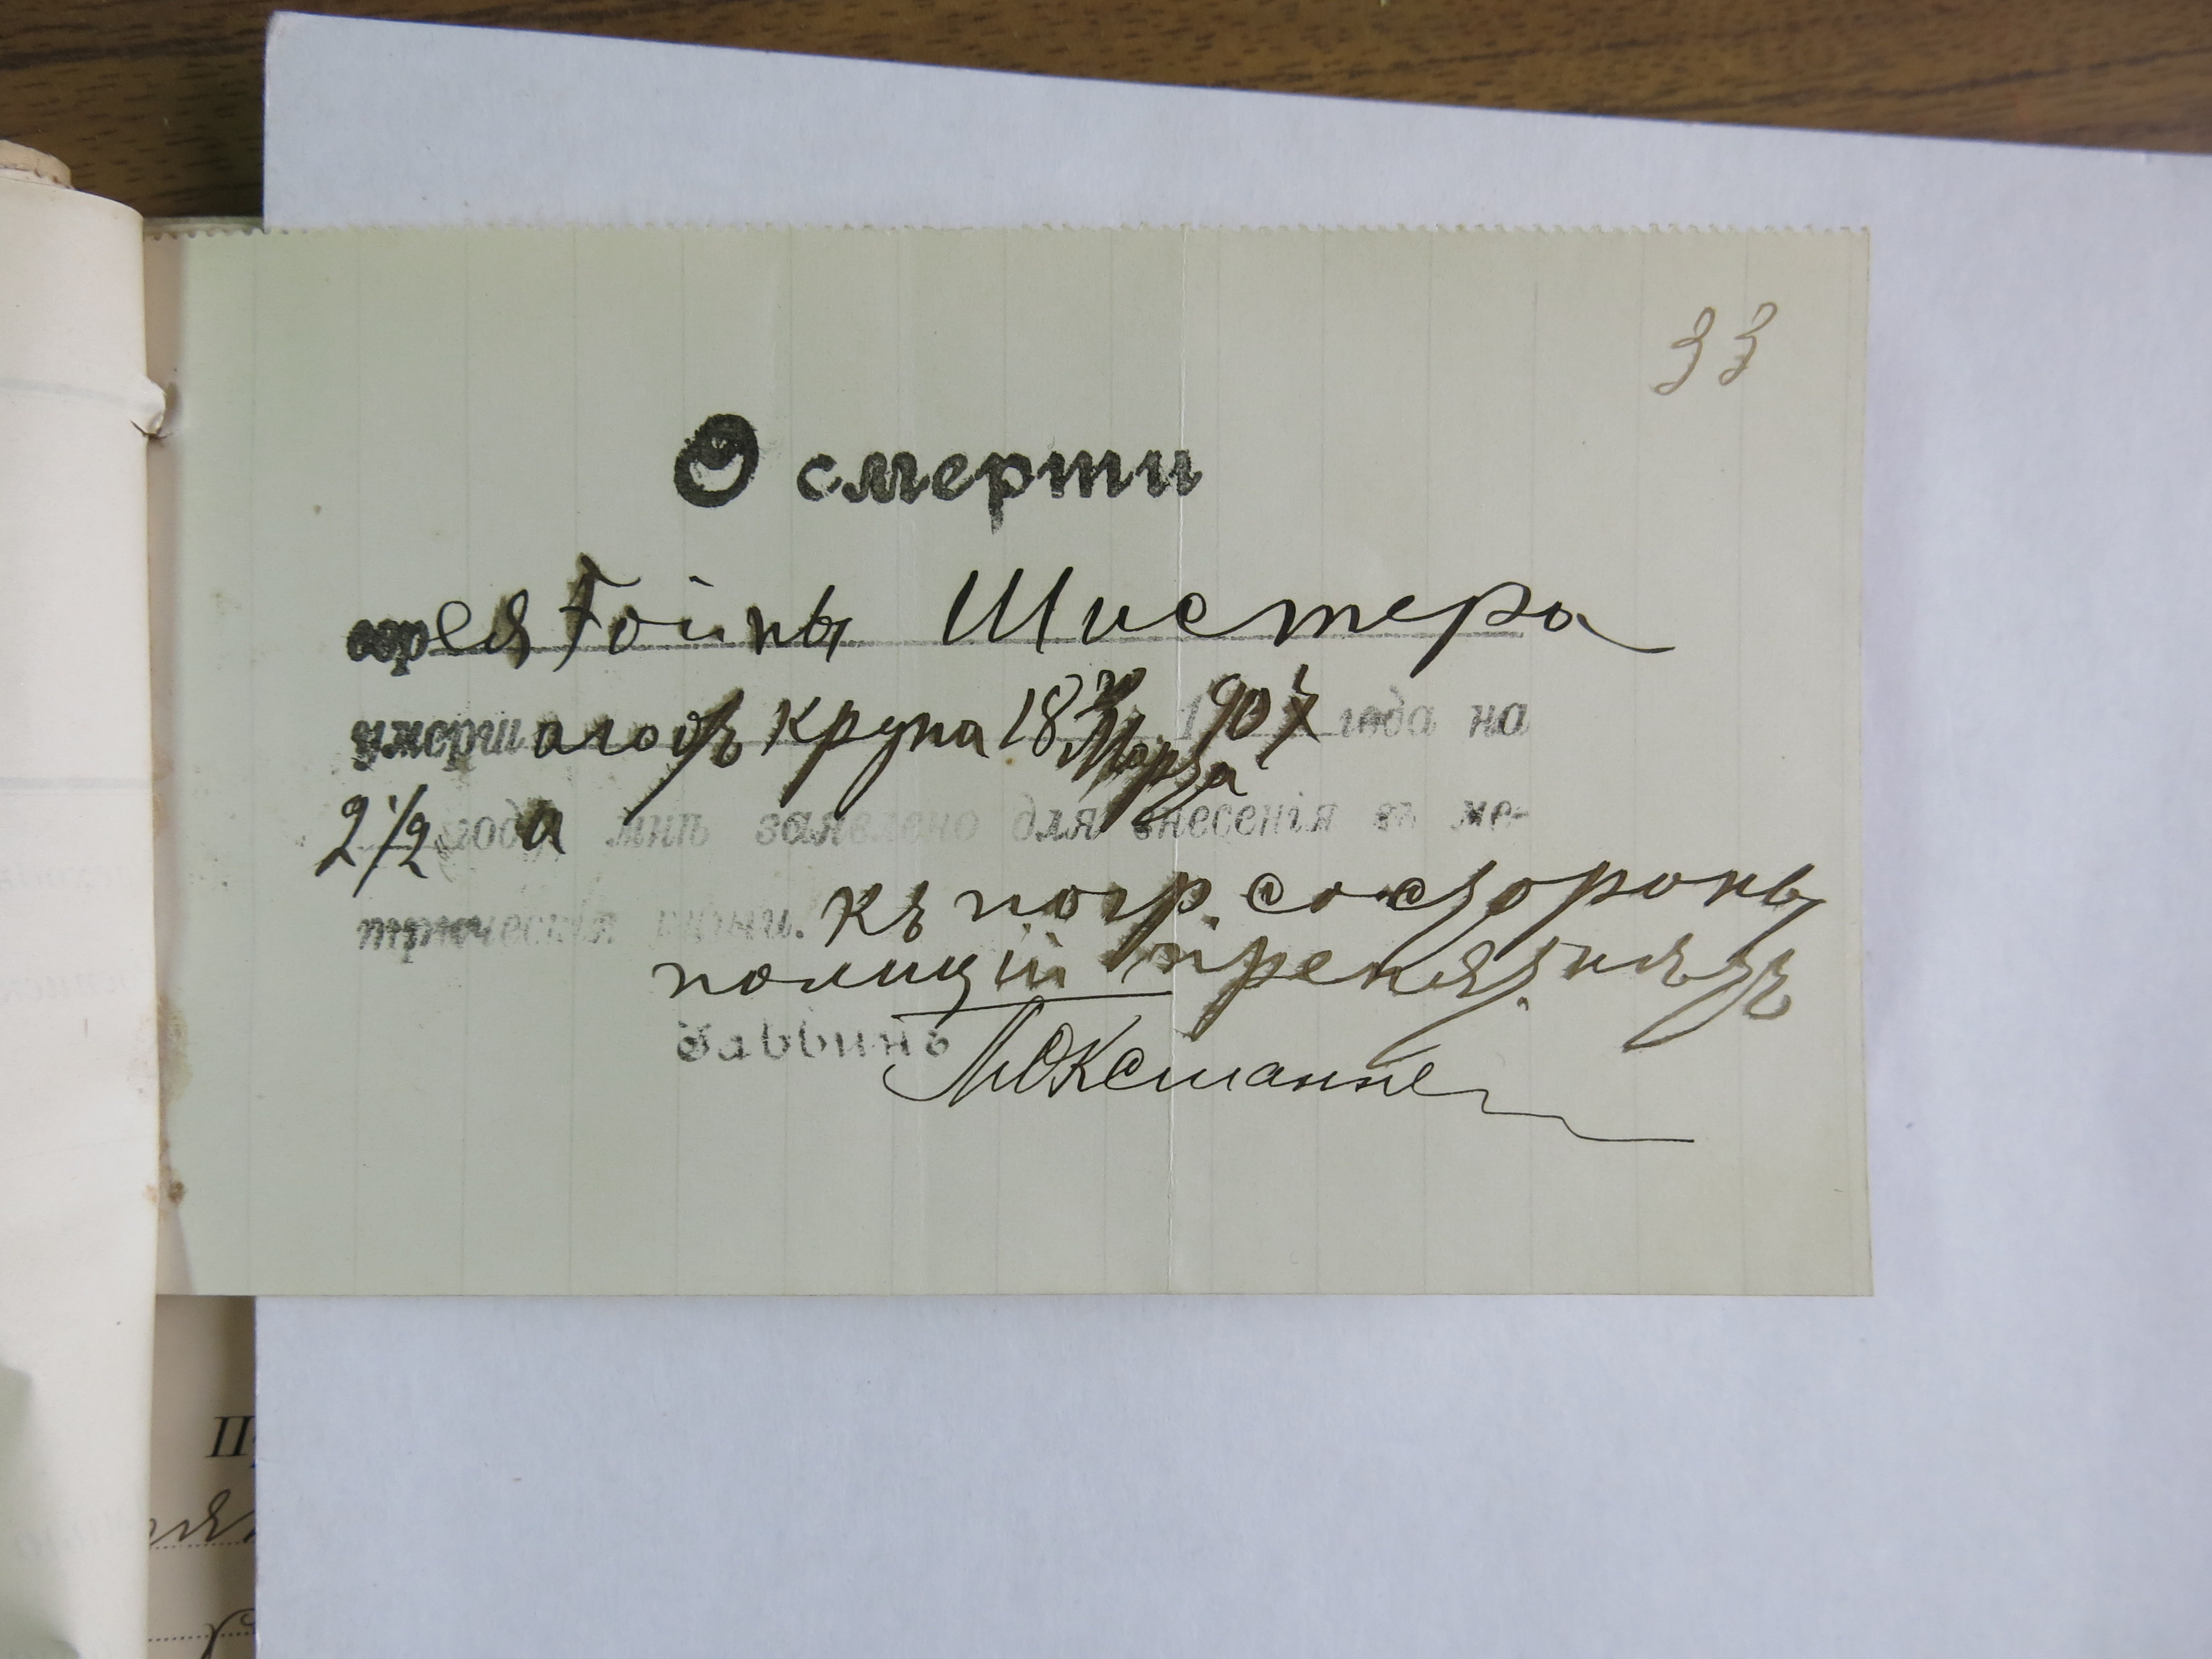 33
О смерти
еврея Гойны Шистера
умершаго отъ крупа 18 Марта 1907 года на
2 1/2 года мнѣ заявлено для внесенія въ ме-
трическія книги. къ погр. со стороны
полиціи препят. нѣтъ
Раввинъ